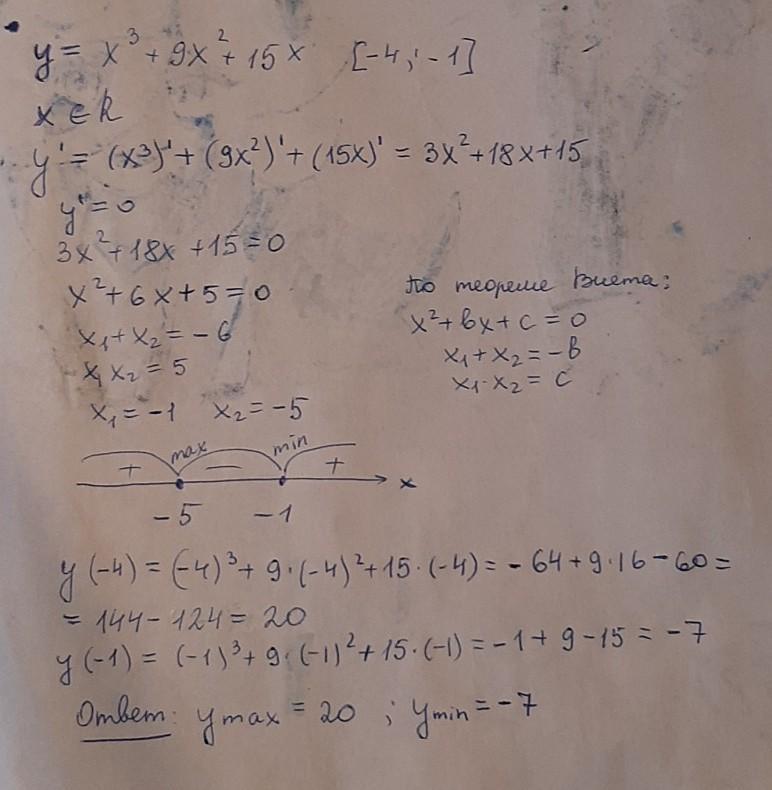 y = x³ + 9x² + 15x [-4; -1]
x ∈ R
y' = (x³)' + (9x²)' + (15x)' = 3x² + 18x + 15
y' = 0
3x² + 18x + 15 = 0
x² + 6x + 5 = 0
x₁ + x₂ = -6
x₁ x₂ = 5
x₁ = -1 x₂ = -5
По теореме Виета:
x² + bx + c = 0
x₁ + x₂ = -b
x₁ · x₂ = c
max min
+ − + x
-5 -1
y(-4) = (-4)³ + 9·(-4)² + 15·(-4) = -64 + 9·16 - 60 =
= 144 - 124 = 20
y(-1) = (-1)³ + 9·(-1)² + 15·(-1) = -1 + 9 - 15 = -7
Ответ: y max = 20 ; y min = -7